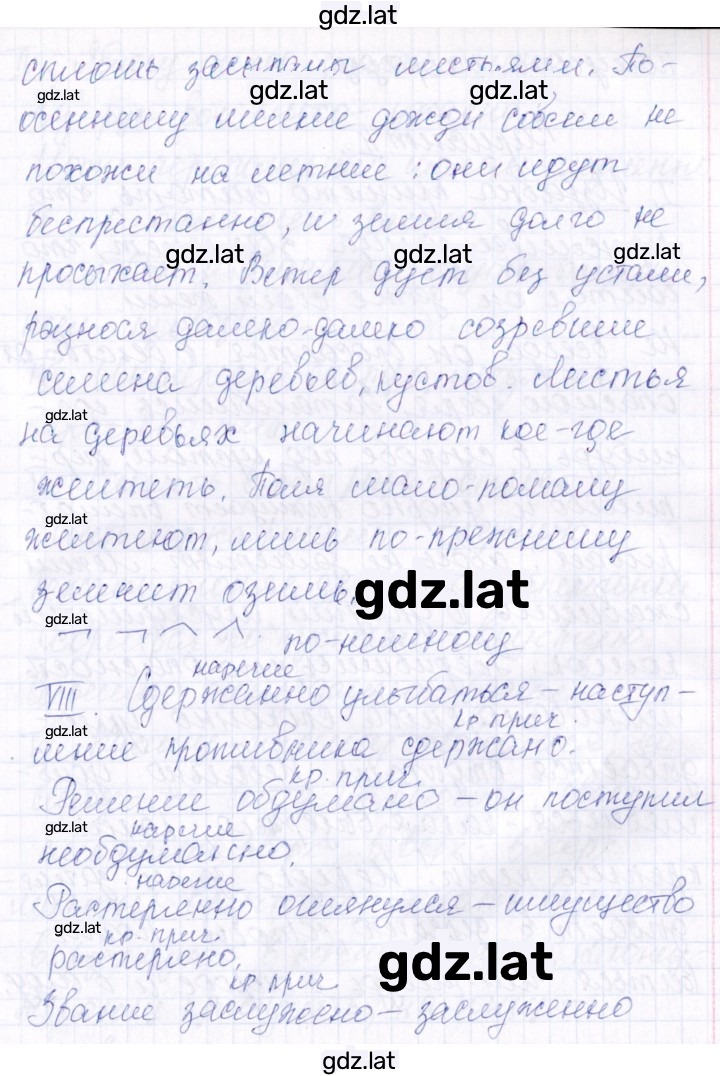 gdz.lat
сплошь засыпаны листьями. По-
gdz.lat gdz.lat gdz.lat
осеннему мелкие дожди совсем не
похожи на летние: они идут
беспрестанно, и земля долго не
gdz.lat gdz.lat gdz.lat
просыхает. Ветер дует без устали,
разнося далеко-далеко созревшие
семена деревьев, кустов. Листья
gdz.lat
на деревьях начинают кое-где
желтеть. Поля мало-помалу
gdz.lat
желтеют, лишь по-прежнему
зеленит озимь.
gdz.lat
gdz.lat
по-немному
наречие
VIII. Сдержанно улыбаться – наступ-
кр. прич.
gdz.lat
ление противника сдержано.
кр. прич.
Решение обдумано – он поступил
gdz.lat наречие
необдуманно.
наречие
Растерянно оглянулся – имущество
gdz.lat
кр. прич.
растеряно.
gdz.lat
кр. прич.
Звание заслужено – заслуженно
gdz.lat